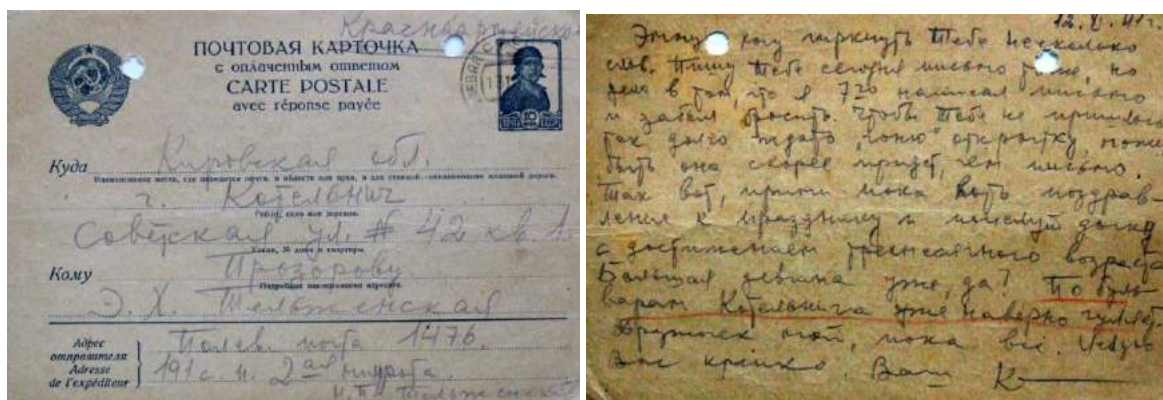 Красноармейское
ПОЧТОВАЯ КАРТОЧКА
с оплаченным ответом
CARTE POSTALE
avec réponse payée
Куда Кировская обл.
Наименование места, где находится почта, и области или края, а для станций - наименование железной дороги.
г. Котельнич
Район, село или деревня.
Советская ул. # 42 кв. 1.
Улица, № дома и квартиры.
Кому Прозорову
Подробное наименование адресата.
Э. Х. Тельженская
Адрес
отправителя
Adresse
de l'expéditeur
Полев. почта 1476.
191 с. п. 2ая
12. 41 г.
хочу черкнуть Тебе несколько
слов. Пишу Тебе сегодня письмо тоже, но
дело в том, что я 7го написал письмо
и забыл бросить. Чтобы Тебе не пришлось
так долго ждать, открытку, может
быть она скорее придет, чем письмо.
Так вот, прими пока хоть поздрав-
ления к празднику и поцелуй дочку
с достижением трехмесячного возраста
Большая девица уже, да? По буль-
варам Котельнича уже наверно гуляет.
мой, пока все. Целую
вас крепко. Ваш К